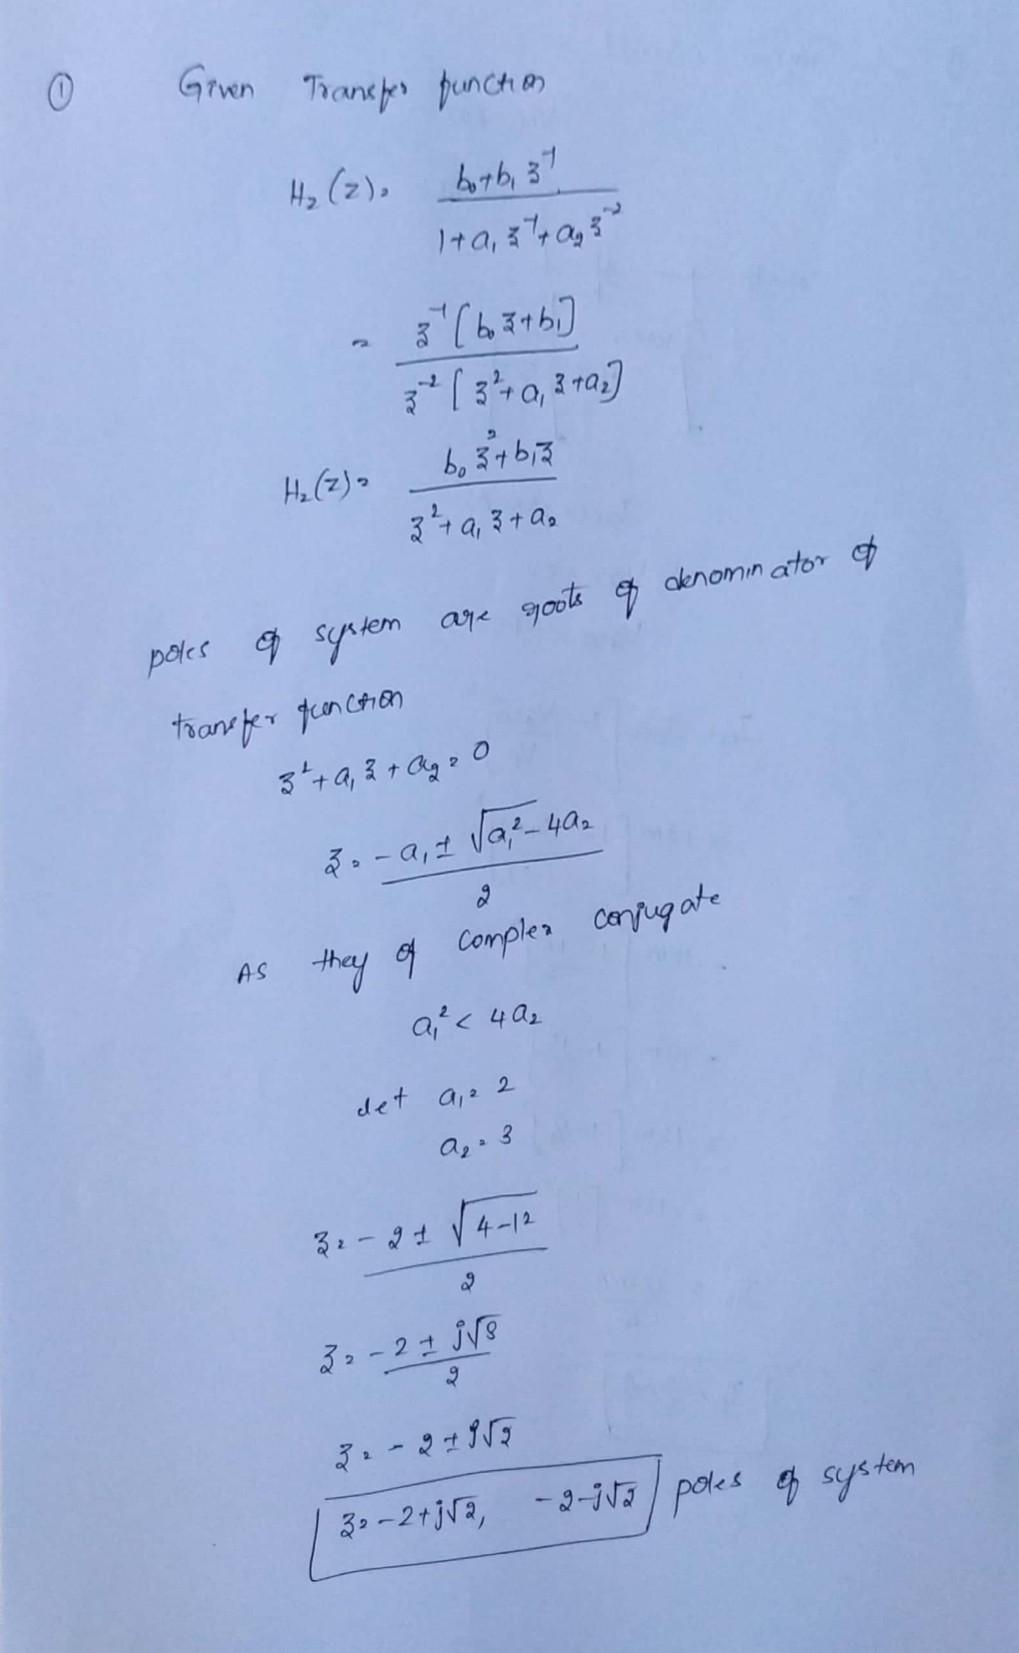 ① Given Transfer function
H₂(z) = (b₀+b₁z⁻¹)/(1+a₁z⁻¹+a₂z⁻²)
= z⁻¹[b₀z+b₁]/z⁻²[z²+a₁z+a₂]
H₂(z) = (b₀z²+b₁z)/(z²+a₁z+a₂)
poles of system are roots of denominator of
transfer function
z²+a₁z+a₂ = 0
z = (-a₁ ± √(a₁²-4a₂))/2
As they of complex conjugate
a₁² < 4a₂
let a₁ = 2
a₂ = 3
z = (-2 ± √(4-12))/2
z = (-2 ± j√8)/2
z = -2 ± j√2
z = -2+j√2, -2-j√2 poles of system